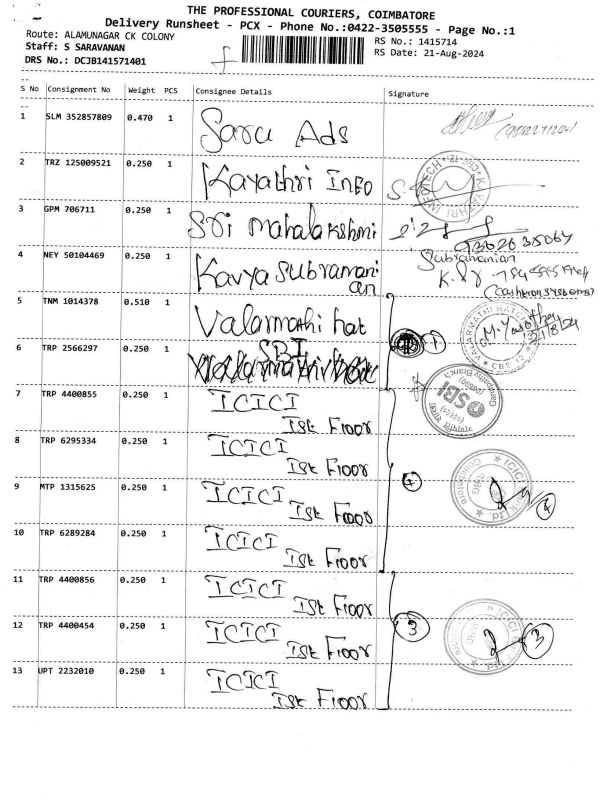 THE PROFESSIONAL COURIERS, COIMBATORE
Delivery Runsheet - PCX - Phone No.:0422-3505555 - Page No.:1
Route: ALAMUNAGAR CK COLONY
RS No.: 1415714
Staff: S SARAVANAN
RS Date: 21-Aug-2024
DRS No.: DCJB141571401
S No Consignment No Weight PCS Consignee Details Signature
1 SLM 352857809 0.470 1 Saru Ads
2 TRZ 125009521 0.250 1 Kayathri Info
3 GPM 706711 0.250 1 Sri mahalakshmi
Subramanian
4 NEY 50104469 0.250 1 Kavya Subramani
an
5 TNM 1014378 0.510 1 Valarmathi hat
1
6 TRP 2566297 0.250 1 SBI
SBI
7 TRP 4400855 0.250 1 ICICI
Ist Floor
8 TRP 6295334 0.250 1 ICICI
Ist Floor
9 MTP 1315625 0.250 1 ICICI 4
Ist Floor
10 TRP 6289284 0.250 1 ICICI
Ist Floor
11 TRP 4400856 0.250 1 ICICI
Ist Floor
12 TRP 4400454 0.250 1 ICICI 3 3
Ist Floor
13 UPT 2232010 0.250 1 ICICI
Ist Floor